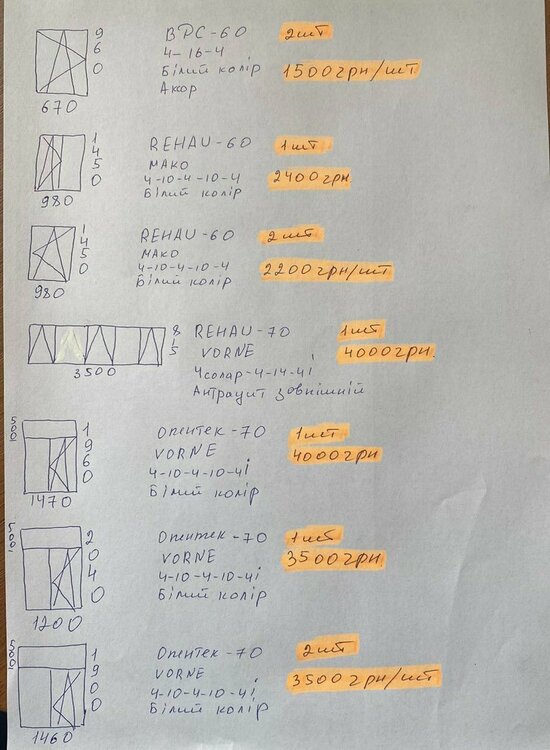 960
ВРС-60 2шт
4-16-4
Білий колір 1500грн/шт
Акор
670
1450
REHAU-60 1шт
МАКО
4-10-4-10-4 2400грн.
Білий колір
980
1450
REHAU-60 2шт
МАКО
4-10-4-10-4 2200грн/шт
Білий колір
980
815
REHAU-70 1шт
VORNE 4000грн.
4солар-4-14-4і
Антрацит зовнішній
3500
500
1960
Опентек-70 1шт
VORNE 4000грн
4-10-4-10-4і
Білий колір
1470
500
2040
Опентек-70 1шт
VORNE 3500грн
4-10-4-10-4і
Білий колір
1200
500
1900
Опентек-70 2шт
VORNE 3500грн/шт
4-10-4-10-4і
Білий колір
1460